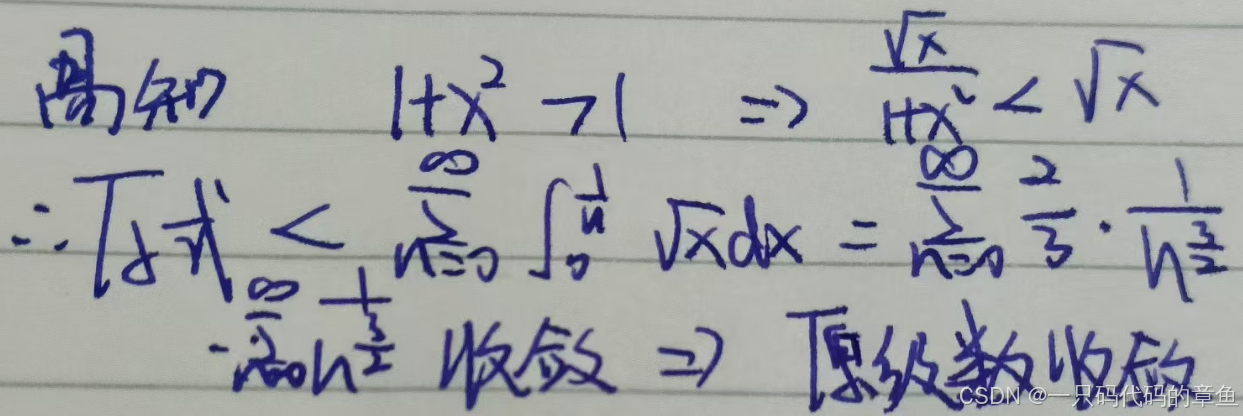 易知 1+x² > 1 ⇒ √x/(1+x²) < √x
∴ 原式 < ∑_{n=0}^{∞} ∫_0^{1/n} √x dx = ∑_{n=0}^{∞} 2/3 · 1/n^{3/2}
∑_{n=0}^{∞} 1/n^{3/2} 收敛 ⇒ 原级数收敛
CSDN @一只码代码的章鱼